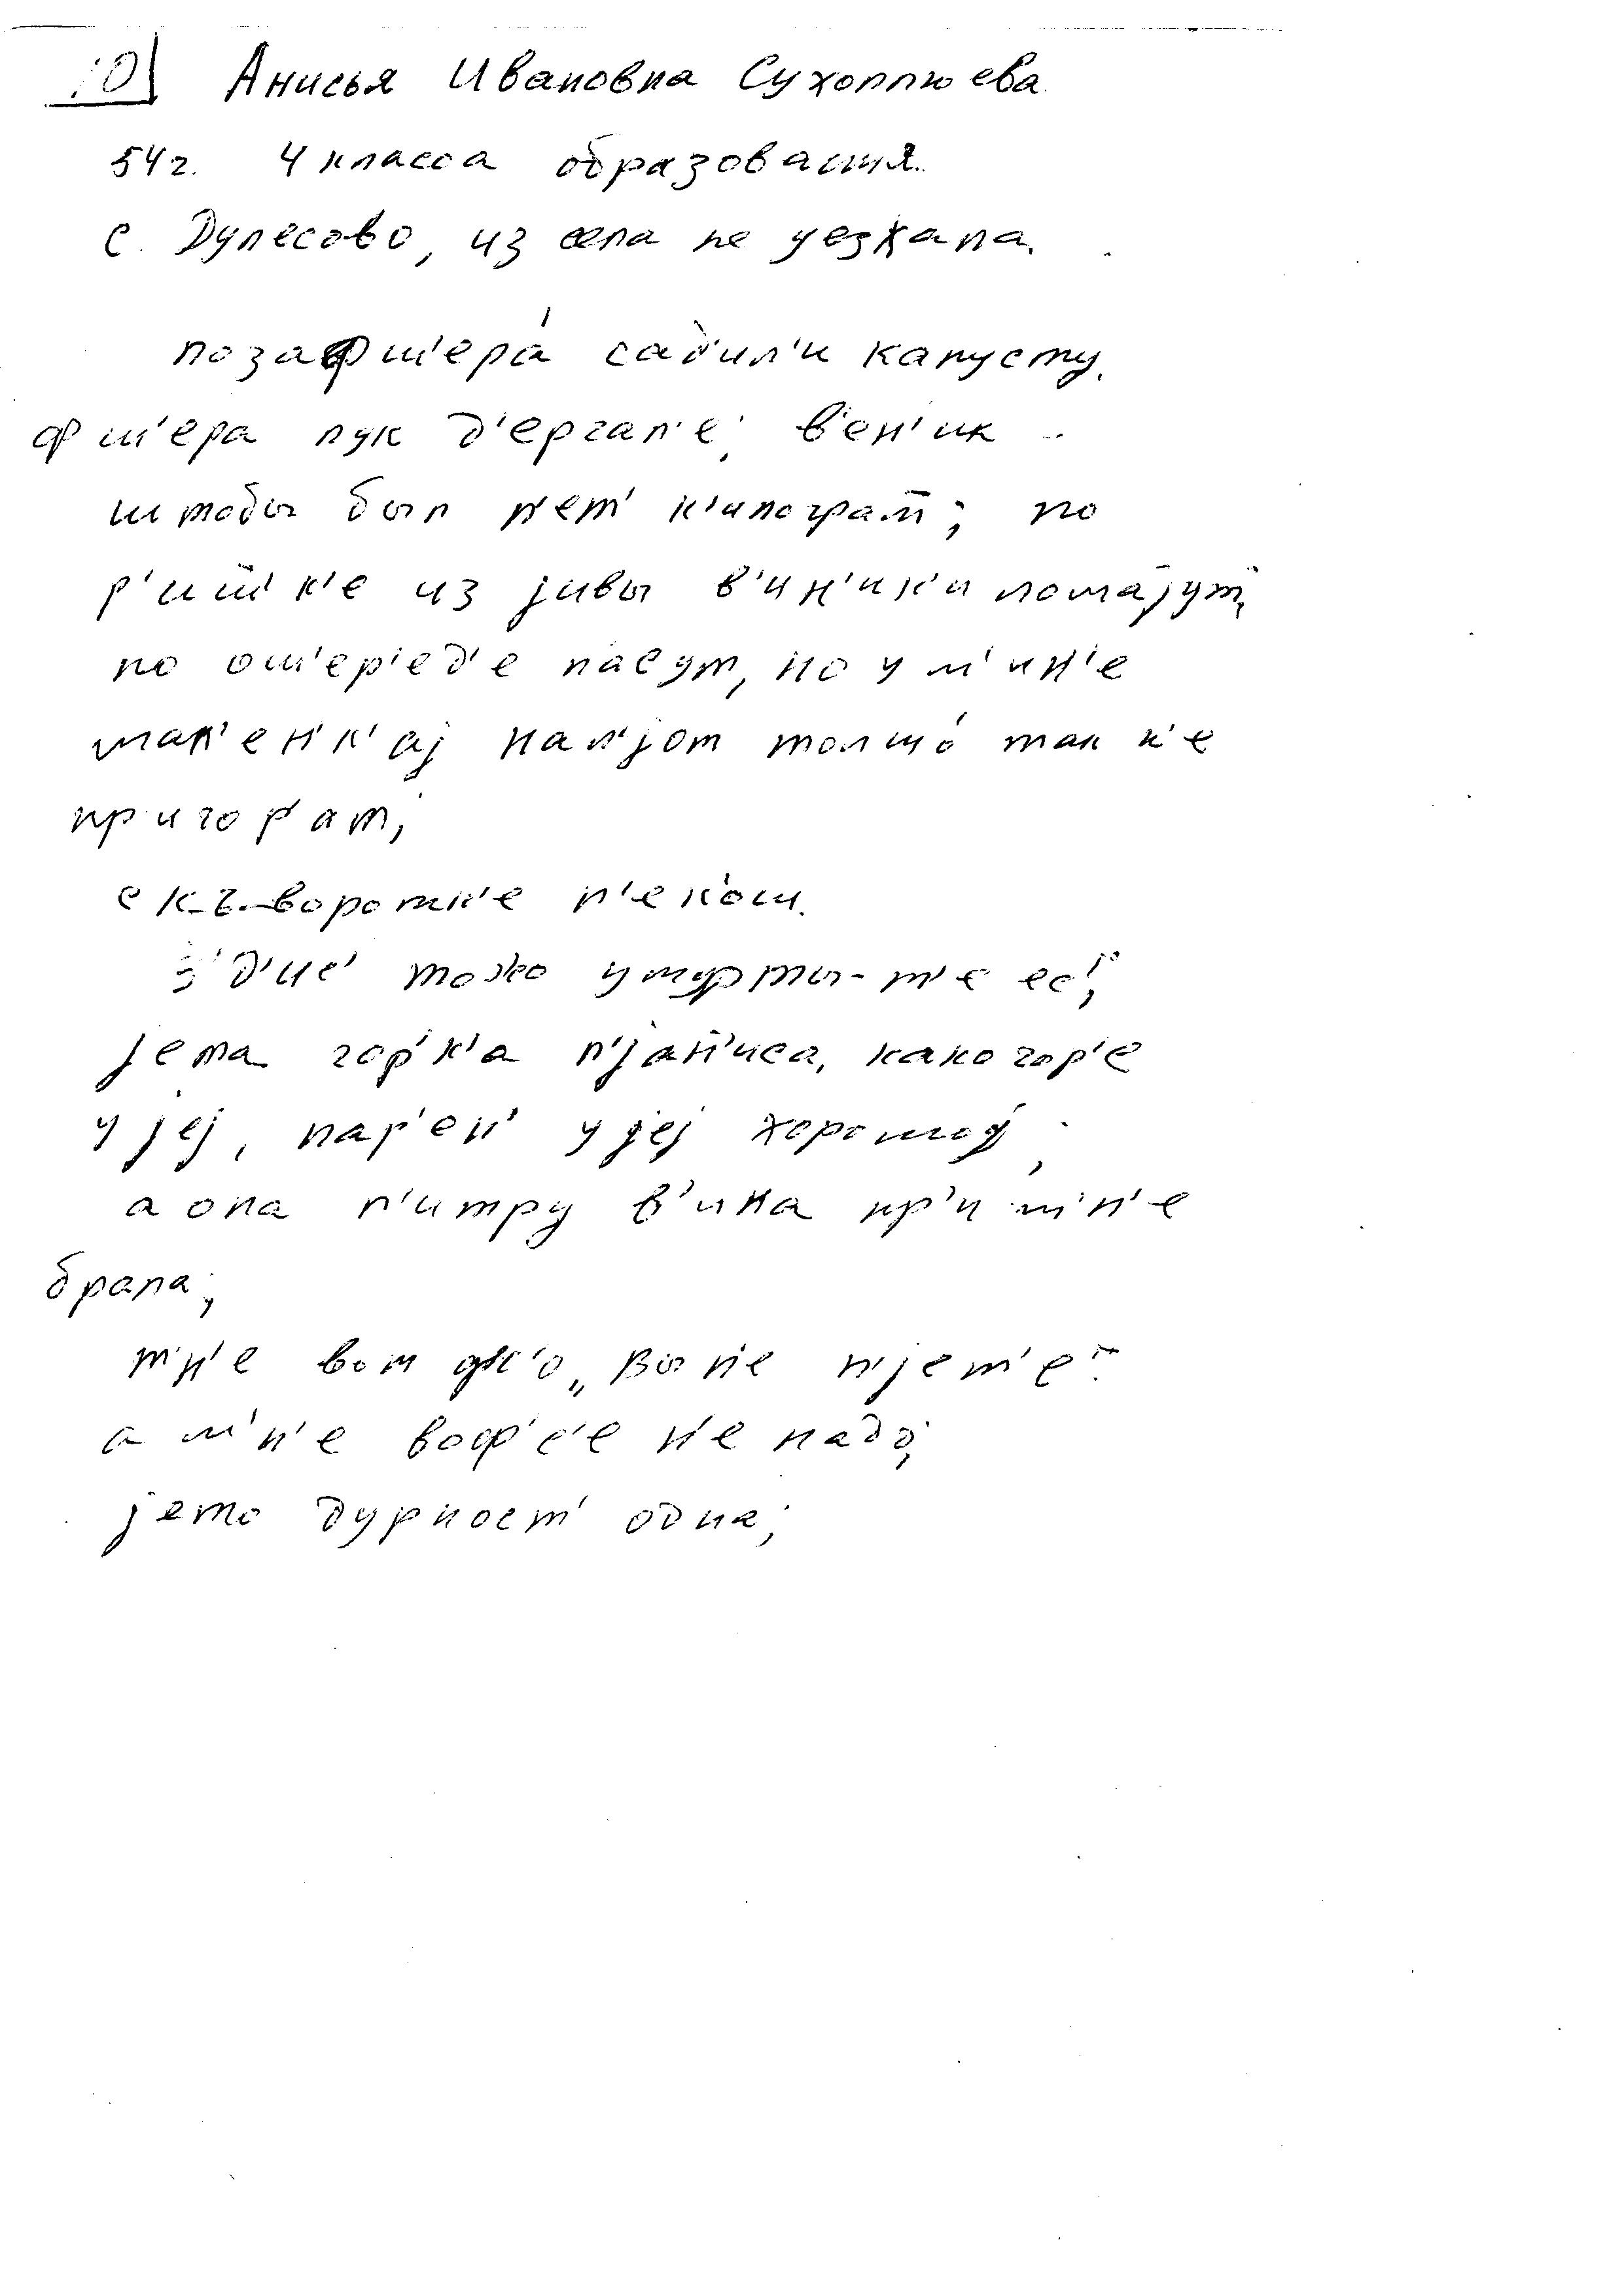 10 Анисья Ивановна Сухоплюева
54 г. 4 класса образования.
с. Дулесово, из села не уезжала.
позафш'ера́ сад'ил'и капусту.
фш'ера лук д'ергал'е; в'ен'ик
штобы был п'ет' к'илограм; по
р'иш'к'е из јивы в'ин'ик'и ломајут,
по ош'ер'ед'е пасут, но у м'ин'е
мал'ен'к'ај нал'јот толшо́ так н'е
пригор'ат,
скъ–воротн'е п'ек'ош.
з'д'ис' тожо умурты-т'е ес';
јета гор'к'а п'јан'иса, како гор'е
у јеј, пар'ен' у јеј хорошој;
а она л'итру в'ина пр'и мн'е
брала;
мн'е вот
вы н'е п'јет'е"
а м'н'е вофс'е н'е надо;
јето дурност' одна;